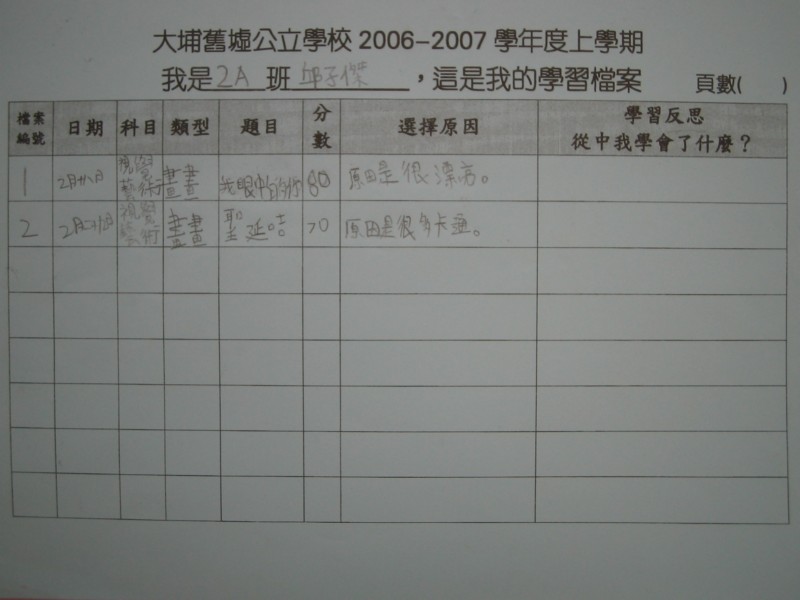 大埔舊墟公立學校 2006-2007 學年度上學期
我是2A班邱子傑，這是我的學習檔案 頁數( )
檔案編號 日期 科目 類型 題目 分數 選擇原因 學習反思 從中我學會了什麼？
1 2月十八日 視覺藝術 畫畫 我眼中的你 80 原因是很漂亮。
2 視覺藝術 畫畫 聖延咭 70 原因是很多卡通。